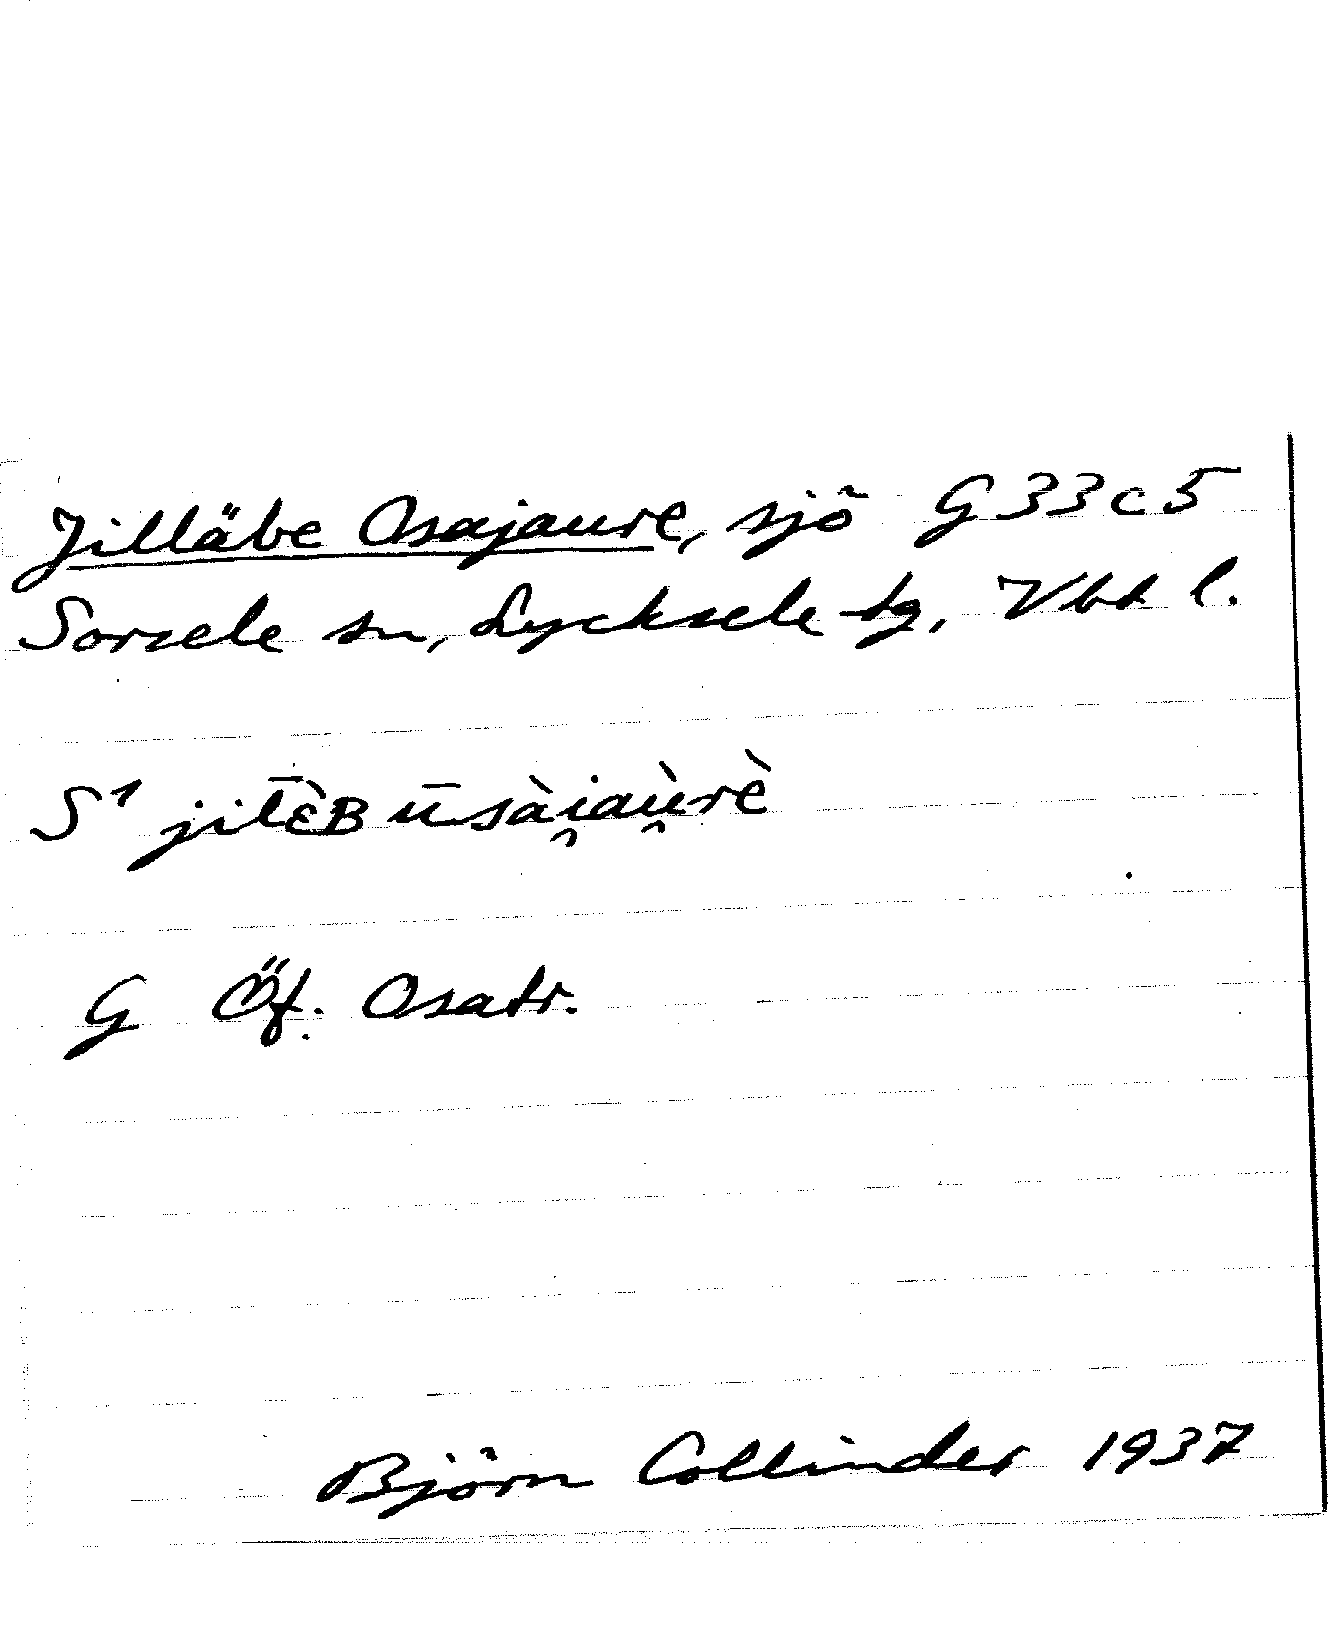 Jilläbe Osajaure, sjö G 33 c 5
Sorsele sn, Lycksele tg, Vbt l.
S¹ jil̄ɛ̀ʙ ūsài̯aù̯rè
G Öf. Osatr.
Björn Collinder 1937